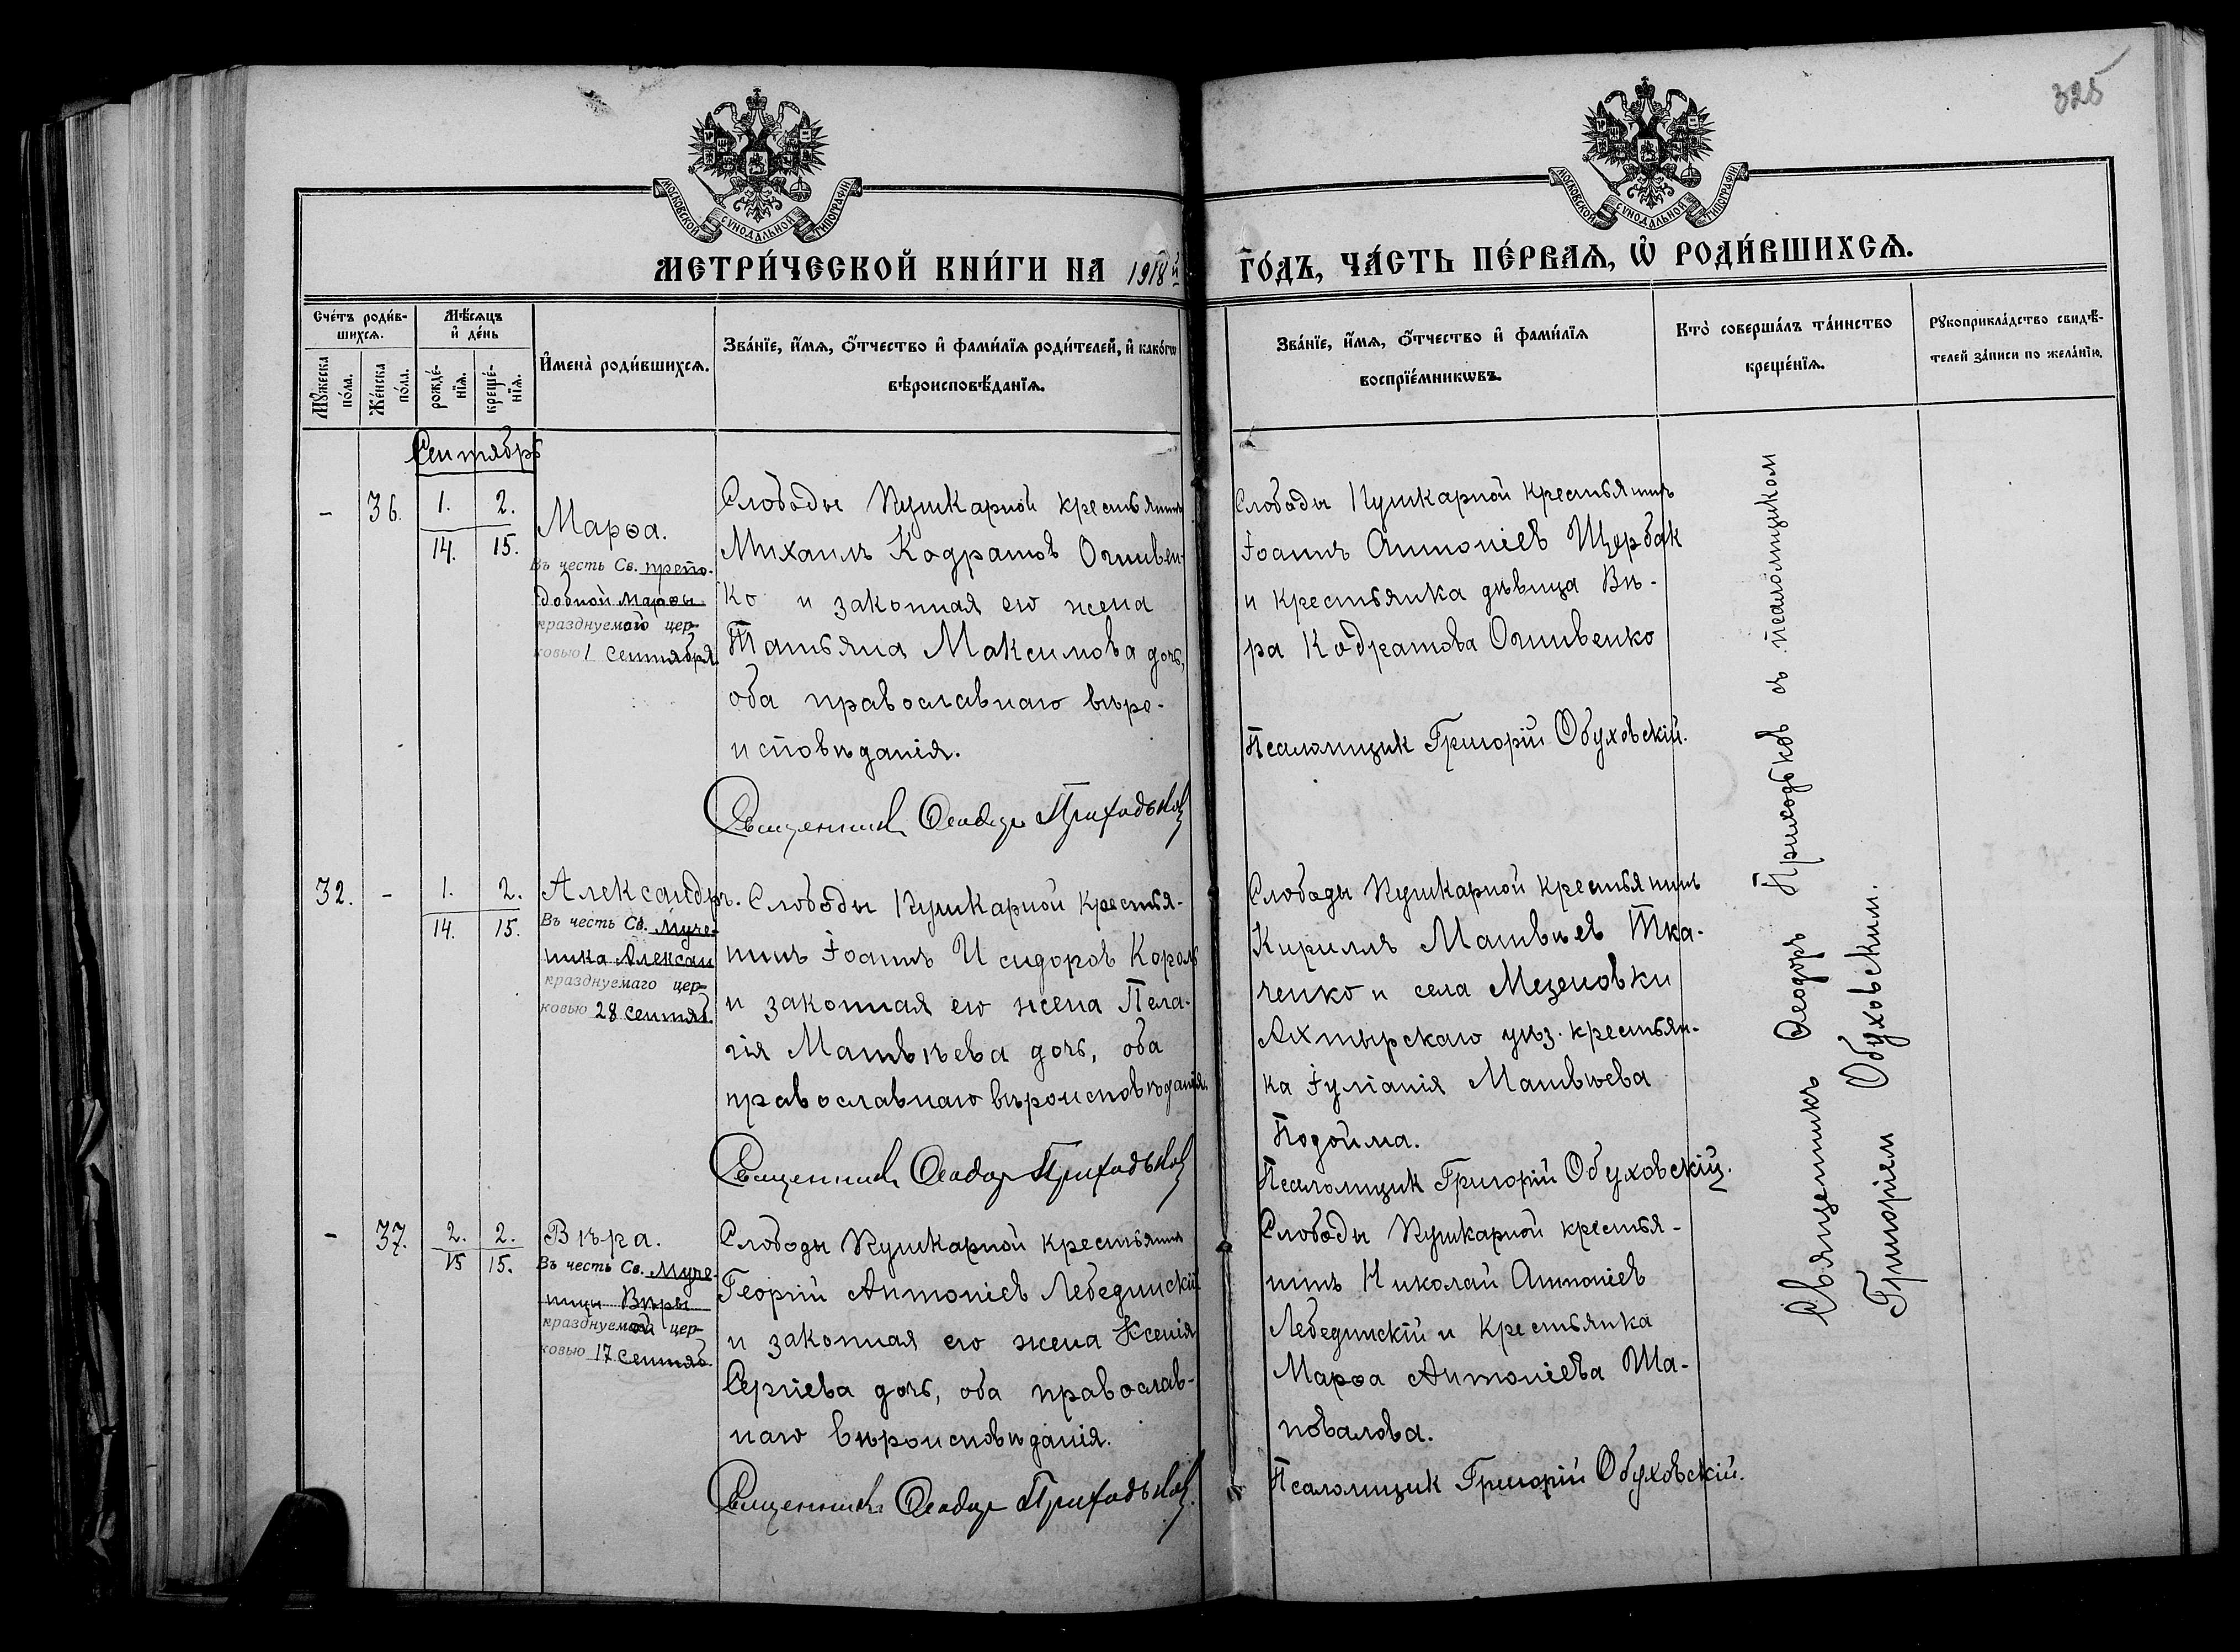 325
МОСКОВСКОЙ СѴНОДАЛЬНОЙ ТИПОГРАФІИ
МОСКОВСКОЙ СѴНОДАЛЬНОЙ ТИПОГРАФІИ
МЕТРИ́ЧЕСКОЙ КНИ́ГИ НА 1918й ГО́ДЪ, ЧА́СТЬ ПЕ́РВАЯ, Ѡ҆ РОДИ́ВШИХСЯ.
Сче́тъ роди́в-
шихся.
Мꙋ́жеска
по́ла.
Же́нска
по́ла.
Мѣ́сяцъ
и҆ де́нь
рожде́-
нїя.
креще́-
нїя.
И҆мена̀ роди́вшихся.
Зва́нїе, и҆́мя, ѻ҆́тчество и҆ фами́лїя роди́телей, и҆ како́гѡ
вѣроисповѣ́данїя.
Зва́нїе, и҆́мя, ѻ҆́тчество и҆ фами́лїя
воспрїе́мникѡвъ.
Кто̀ соверша́лъ та́инство
креще́нїя.
Рꙋкоприкла́дство свидѣ́-
телей за́писи по жела́нїю.
Сентябрь
- 36. 1. 2.
14. 15.
Марѳа.
Въ честь Св. препо-
добной Марѳы
празднуемой цер-
ковью 1 Сентября
Слободы Пушкарной крестьянинъ
Михаилъ Кодратов Огнивен-
ко и законная его жена
Татьяна Максимова дочь,
оба православнаго вѣро-
исповѣданія.
Священник Ѳеодор Приходьков
Слободы Пушкарной крестьянинъ
Іоаннъ Антоніев Щербак
и крестьянка дѣвица Вѣ-
ра Кодратова Огнивенко
Псаломщик Григорій Обуховскій.
32. - 1. 2.
14. 15.
Александръ.
Въ честь Св. Муче-
ника Алексан
празднуемаго цер-
ковью 28 Сентяб.
Слободы Пушкарной крестья-
нинъ Іоаннъ Исидоров Король
и законная его жена Пела-
гія Матвѣева дочь, оба
православнаго вѣроисповѣданія.
Священник Ѳеодор Приходьков
Слободы Пушкарной крестьянинъ
Кириллъ Матвѣев Тка-
ченко и села Мезеновки
Ахтырскаго уѣз. крестьян-
ка Іуліанія Матвѣева
Подойма.
Псаломщик Григорій Обуховскій.
- 37. 2. 2.
15 15.
Вѣра.
Въ честь Св. Муче-
ницы Вѣры
празднуемой цер-
ковью 17 Сентяб.
Слободы Пушкарной крестьянинъ
Георгій Антоніев Лебединскій
и законная его жена Ксенія
Сергіева дочь, оба православ-
наго вѣроисповѣданія.
Священник Ѳеодор Приходьков.
Слободы Пушкарной крестья-
нинъ Николай Антоніев
Лебединскій и крестьянка
Марѳа Антоніева Ша-
повалова.
Псаломщик Григорій Обуховскій.
Священникъ Ѳеодоръ Приходьков съ псаломщиком
Григоріем Обуховским.